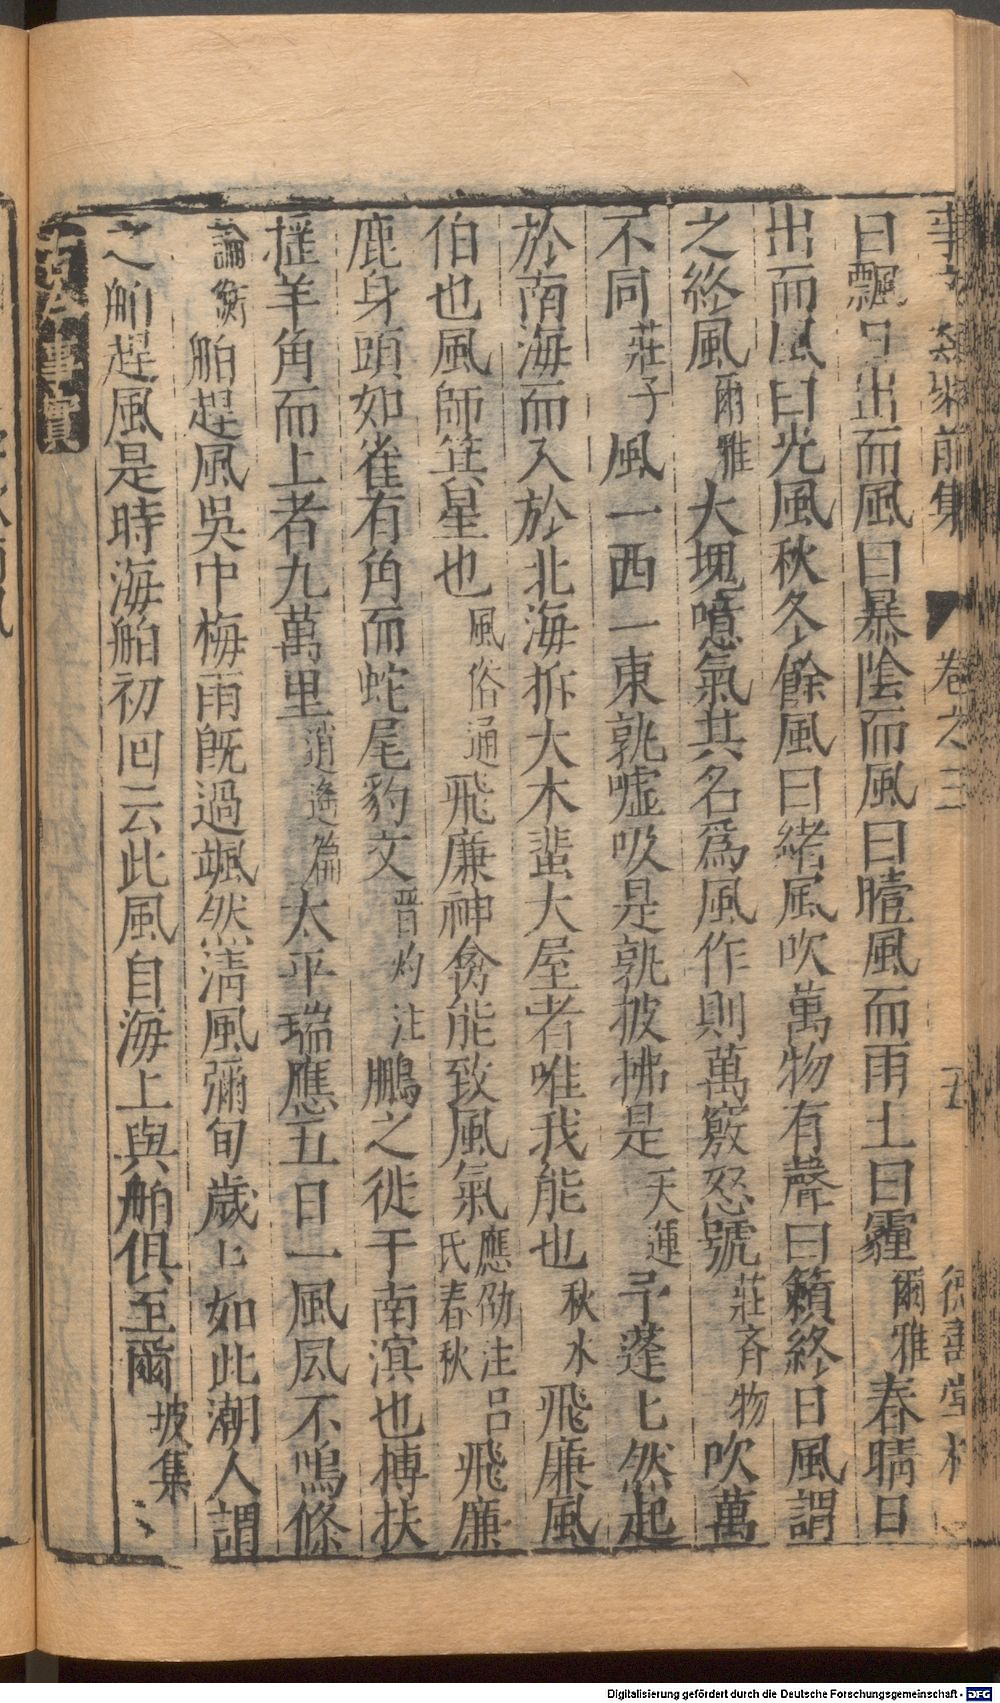 事文類聚前集 卷之三 五 德壽堂梓
曰飄日出而風曰暴陰而風曰曀風而雨土曰霾爾雅春晴日
出而風曰光風秋冬餘風曰緒風吹萬物有聲曰籟終日風謂
之終風爾雅大塊噫氣其名爲風作則萬竅怒號莊齊物吹萬
不同莊子風一西一東孰噓吸是孰披拂是天運予蓬匕然起
於南海而入於北海拆大木蜚大屋者唯我能也秋水飛廉風
伯也風師箕星也風俗通飛廉神禽能致風氣應劭注呂氏春秋飛廉
鹿身頭如雀有角而蛇尾豹文晋灼注鵬之徙于南溟也摶扶
摇羊角而上者九萬里逍遙篇太平瑞應五日一風風不鳴條
論衡舶趕風吳中梅雨旣過颯然清風彌旬歲匕如此潮人謂
之舶趕風是時海舶初回云此風自海上與舶俱至爾坡集
古今事實
Digitalisierung gefördert durch die Deutsche Forschungsgemeinschaft - DFG